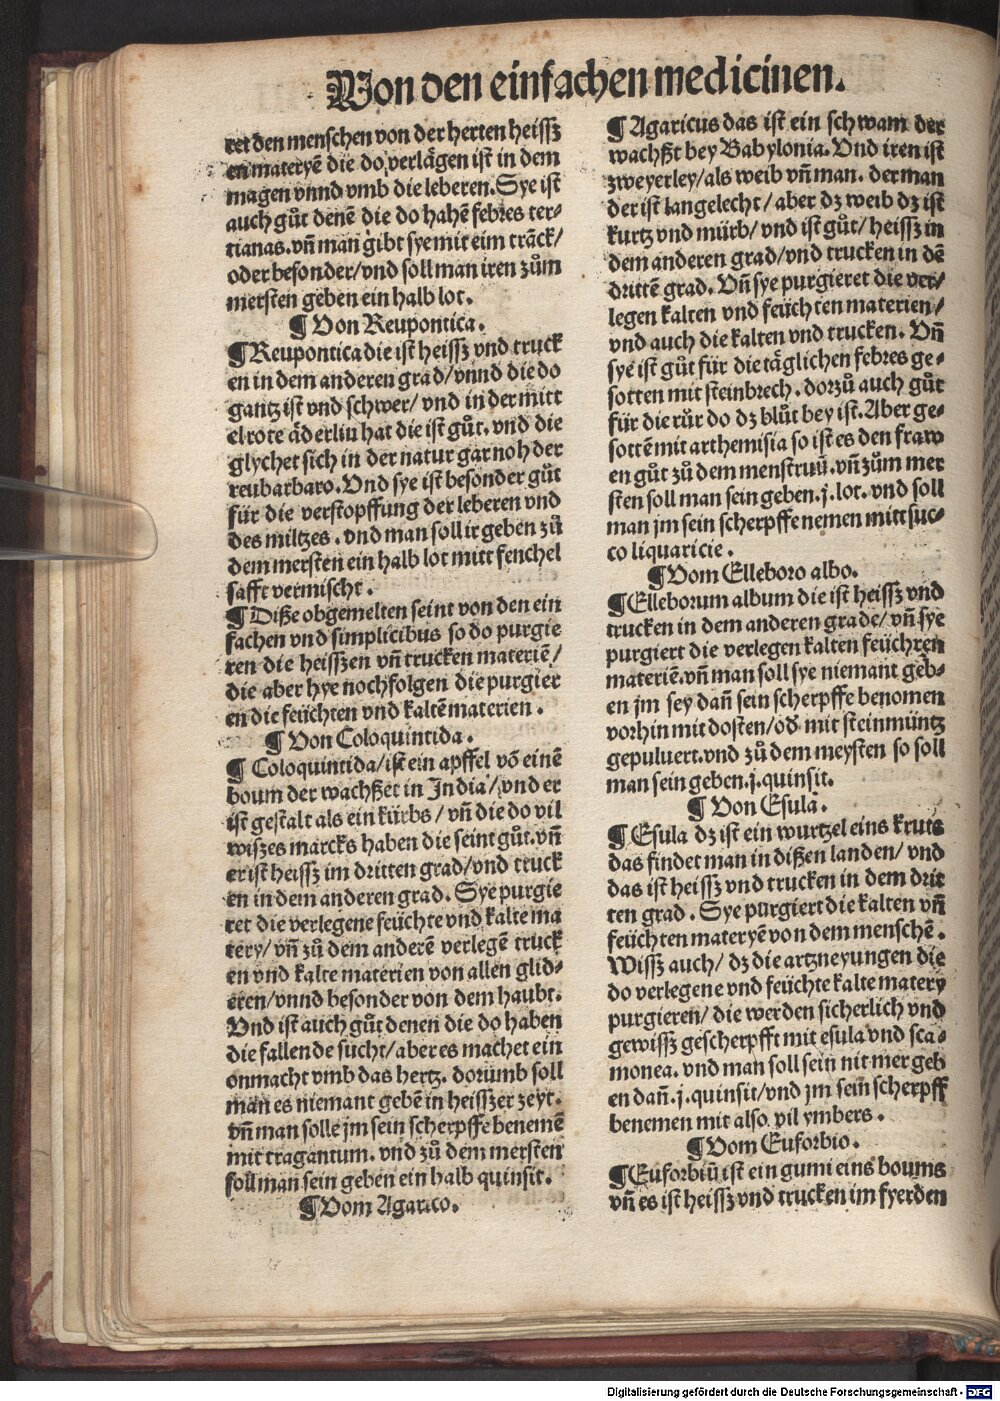 Von den einfachen medicinen.
ret den menschen von der herten heissz
en materyē die do verlägen ist in dem
magen vnnd vmb die leberen. Sye ist
auch gůt denē die do habē febres ter-
tianas. vn̄ man gibt sye mit eim trāck/
oder besonder/vnd soll man iren zům
mersten geben ein halb lot.
¶ Von Reupontica.
¶ Reupontica die ist heissz vnd truck
en in dem anderen grad/vnnd die do
gantz ist vnd schwer/ vnd in der mitt
el rote äderlin hat die ist gůt. vnd die
glychet sich in der natur gar noh der
reubarbaro. Vnd sye ist besonder gůt
für die verstopffung der leberen vnd
des miltzes. vnd man soll ir geben zů
dem mersten ein halb lot mitt fenchel
safft vermischt.
¶ Diße obgemelten seint von den ein
fachen vnd simplicibus so do purgie
ren die heisszen vn̄ trucken materiē/
die aber hye nochfolgen die purgier
en die feüchten vnd kaltē materien.
¶ Von Coloquintida.
¶ Coloquintida/ist ein apffel vō einē
boum der wachßet in India/vnd er
ist gestalt als ein kürbs/ vn̄ die do vil
wißes marcks haben die seint gůt. vn̄
er ist heissz im dritten grad/vnd truck
en in dem anderen grad. Sye purgie
ret die verlegene feüchte vnd kalte ma
tery/ vn̄ zů dem anderē verlegē truck
en vnd kalte materien von allen glid-
eren/vnnd besonder von dem haubt.
Vnd ist auch gůt denen die do haben
die fallende sucht/aber es machet ein
onmacht vmb das hertz. dorumb soll
man es niemant gebē in heisszer zeyt.
vn̄ man solle jm sein scherpffe benemē
mit tragantum. vnd zů dem mersten
soll man sein geben ein halb quinsit.
¶ Vom Agarico.
¶ Agaricus das ist ein schwam der
wachßt bey Babylonia. Vnd iren ist
zweyerley/als weib vn̄ man. der man
der ist langelecht/ aber dz weib dz ist
kurtz vnd mürb/ vnd ist gůt/ heissz in
dem anderen grad/vnd trucken in dē
drittē grad. Vn̄ sye purgieret die ver/
legen kalten vnd feüchten materien/
vnd auch die kalten vnd trucken. Vn̄
sye ist gůt für die täglichen febres ge-
sotten mit steinbrech. dorzů auch gůt
für die růr do dz blůt bey ist. Aber ge-
sottē mit arthemisia so ist es den fraw
en gůt zů dem menstruū. vn̄ zům mer
sten soll man sein geben. j. lot. vnd soll
man jm sein scherpffe nemen mitt suc-
co liquaricie.
¶ Vom Elleboro albo.
¶ Elleborum album die ist heissz vnd
trucken in dem anderen grade/ vn̄ sye
purgiert die verlegen kalten feüchren
materiē. vn̄ man soll sye niemant geb-
en jm sey dan̄ sein scherpffe benomen
vorhin mit dosten/od̄ mit steinmüntz
gepuluert. vnd zů dem meysten so soll
man sein geben. j. quinsit.
¶ Von Esula.
¶ Esula dz ist ein wurtzel eins kruts
das findet man in dißen landen/ vnd
das ist heissz vnd trucken in dem drit
ten grad. Sye purgiert die kalten vn̄
feüchten materyē von dem menschē.
Wissz auch/ dz die artzneyungen die
do verlegene vnd feüchte kalte matery
purgieren/ die werden sicherlich vnd
gewissz gescherpfft mit esula vnd sca-
monea. vnd man soll sein nit mer geb
en dan̄. j. quinsit/vnd jm sein scherpff
benemen mit also vil ymbers.
¶ Vom Euforbio.
¶ Euforbiū ist ein gumi eins boums
vn̄ es ist heissz vnd trucken im fyerden
Digitalisierung gefördert durch die Deutsche Forschungsgemeinschaft - DFG